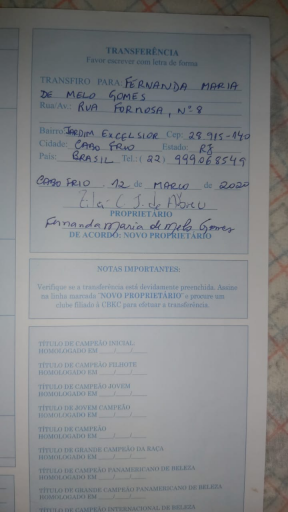 TRANSFERÊNCIA
Favor escrever com letra de forma
TRANSFIRO PARA: FERNANDA MARIA
DE MELO GOMES
Rua/Av.: RUA FORMOSA, Nº 8
Bairro: JARDIM EXCELSIOR Cep: 28.915-140
Cidade: CABO FRIO Estado: RJ
País: BRASIL Tel.: (22) 999068549
CABO FRIO, 12 de MARÇO de 2020
PROPRIETÁRIO
Fernanda Maria de Melo Gomes
DE ACORDO: NOVO PROPRIETÁRIO
NOTAS IMPORTANTES:
Verifique se a transferência está devidamente preenchida. Assine
na linha marcada "NOVO PROPRIETÁRIO" e procure um
clube filiado à CBKC para efetuar a transferência.
TÍTULO DE CAMPEÃO INICIAL
HOMOLOGADO EM ____/____/____
TÍTULO DE CAMPEÃO FILHOTE
HOMOLOGADO EM ____/____/____
TÍTULO DE CAMPEÃO JOVEM
HOMOLOGADO EM ____/____/____
TÍTULO DE JOVEM CAMPEÃO
HOMOLOGADO EM ____/____/____
TÍTULO DE CAMPEÃO
HOMOLOGADO EM ____/____/____
TÍTULO DE GRANDE CAMPEÃO DA RAÇA
HOMOLOGADO EM ____/____/____
TÍTULO DE CAMPEÃO PANAMERICANO DE BELEZA
HOMOLOGADO EM ____/____/____
TÍTULO DE GRANDE CAMPEÃO PANAMERICANO DE BELEZA
HOMOLOGADO EM ____/____/____
TÍTULO DE CAMPEÃO INTERNACIONAL DE BELEZA